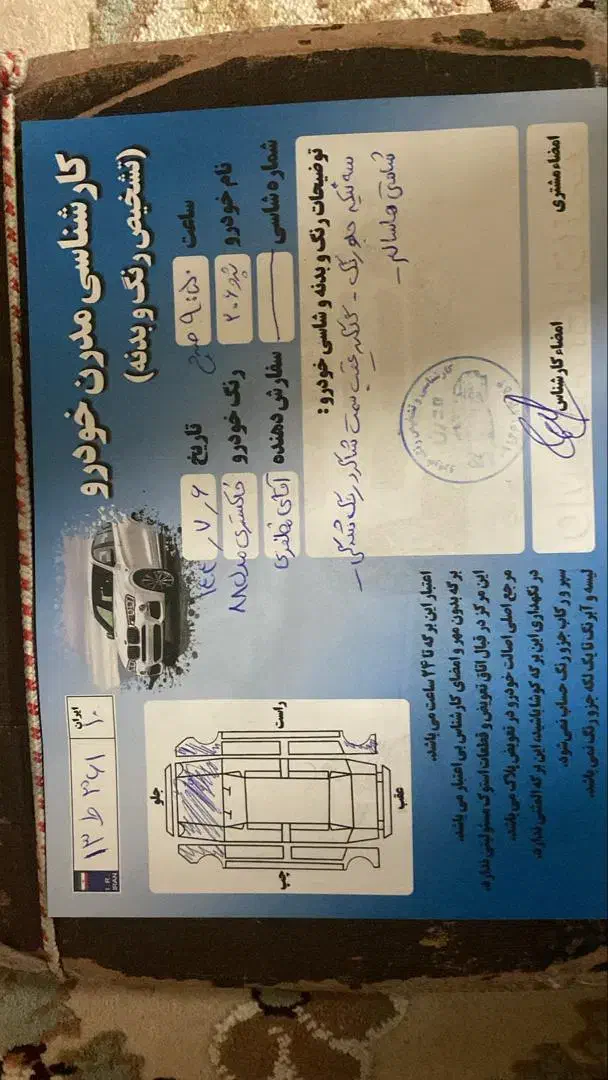 کارشناسی مدرن خودرو
(تشخیص رنگ و بدنه)
I.R.
IRAN
۱۳ ط ۳۶۱
ایران
۱۰
ساعت
۹:۵۰ صبح
تاریخ
نام خودرو
پژو ۲۰۶
رنگ خودرو
خاکستری مدل ۸۸
شماره شاسی
سفارش دهنده
آقای
توضیحات رنگ و بدنه و شاسی خودرو :
سه تیکه جلو رنگ - گلگیر عقب سمت شاگرد رنگ
شاسی ها سالم -
امضاء مشتری
امضاء کارشناس
جلو
راست
چپ
عقب
اعتبار این برگه تا ۲۴ ساعت می باشد.
برگه بدون مهر و امضای کارشناس بی اعتبار می باشد.
این مرکز در قبال اتاق تعویض و قطعات استوک مسئولیتی ندارد.
مرجع اصلی اصالت خودرو در تعویض پلاک می باشد.
در نگهداری این برگه کوشا باشید، این برگه المثنی ندارد.
سپر و رکاب جزو رنگ حساب نمی شود.
لیسه و آبرنگ تا یک لکه جزو رنگ نمی باشد.